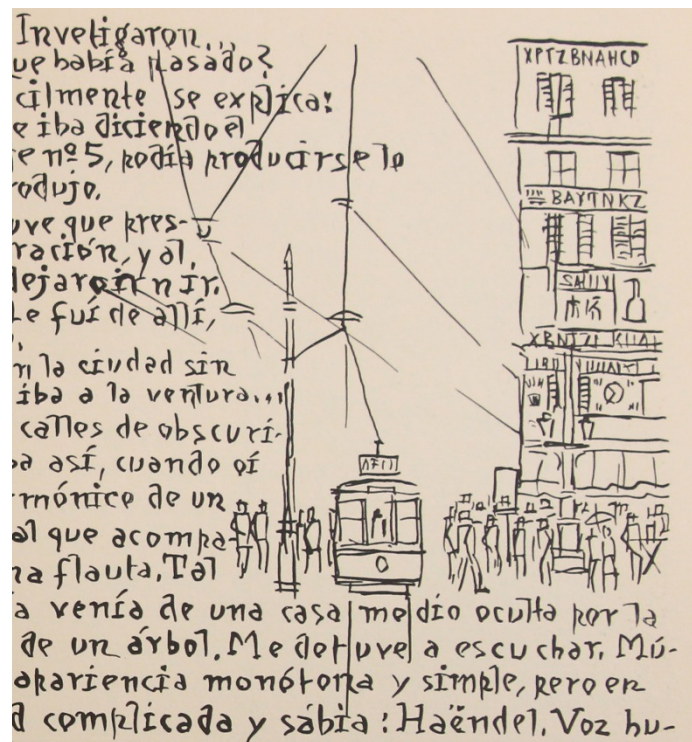 Inveſtigaron...
ue había pasado?
cilmente se explica:
e iba diciendo el
e nº 5, podía producirse lo
rodujo.
uve que pres-
ración, y al,
dejaron ir.
e fuí de allí,
n la ciudad sin
iba a la ventura...
calles de obscuri-
a así, cuando oí
mónico de un
al que acompa-
na flauta. Tal
a venía de una casa medio oculta por la
de un árbol. Me detuve a escuchar. Mú-
apariencia monótona y simple, pero en
d complicada y sábia: Haëndel. Voz hu-
XPTZBNAHCD
BAYTNKZ